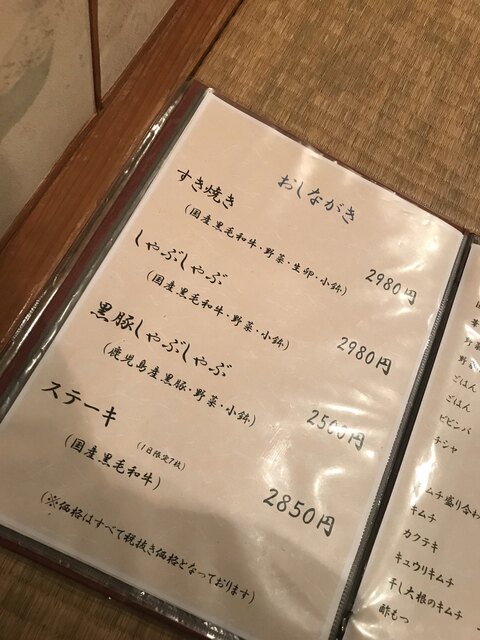 おしながき
すき焼き
(国産黒毛和牛・野菜・生卵・小鉢)
2980円
しゃぶしゃぶ
(国産黒毛和牛・野菜・小鉢)
2980円
黒豚しゃぶしゃぶ
(鹿児島産黒豚・野菜・小鉢)
2500円
ステーキ
(1日限定7枚)
(国産黒毛和牛)
2850円
(※価格はすべて税抜き価格となっております)
ごはん
ごはん
ビビンバ
チシャ
キムチ盛り合わ
キムチ
カクテキ
キュウリキムチ
干し大根のキムチ
酢もつ